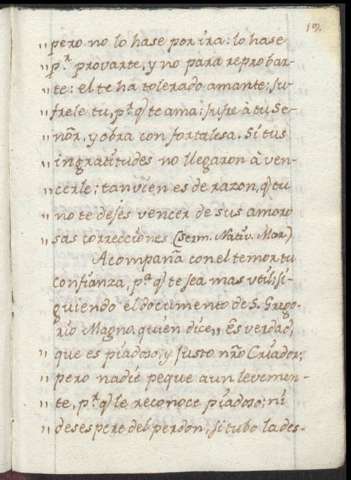 19.
„ pero no lo hase por ira: lo hase
„ p.r provarte, y no para reprobar-
„ te: el te ha tolerado amante; su-
„ frele tu, p.r q̃ te ama: sufre à tu Se-
„ ñor, y obra con fortalesa. Si tus
„ ingratitudes no llegaron à ven-
„ cerle; tanvien es de razon, q̃ tu
„ no te dejes vencer de sus amoro
„ sas correcciones (Serm. Nativ. Mar.)
Acompaña con el temor tu
confianza, p.a q̃ te sea mas vtil; si-
guiendo el documento de S. Grego-
rio Magno, quien dice „ Es verdad,
„ que es piadoso, y justo nr̃o Criador;
„ pero nadie peque aun levemen-
„ te, p.r q̃ le reconoce piadoso; ni
„ desespere del perdon; si tubo la des-